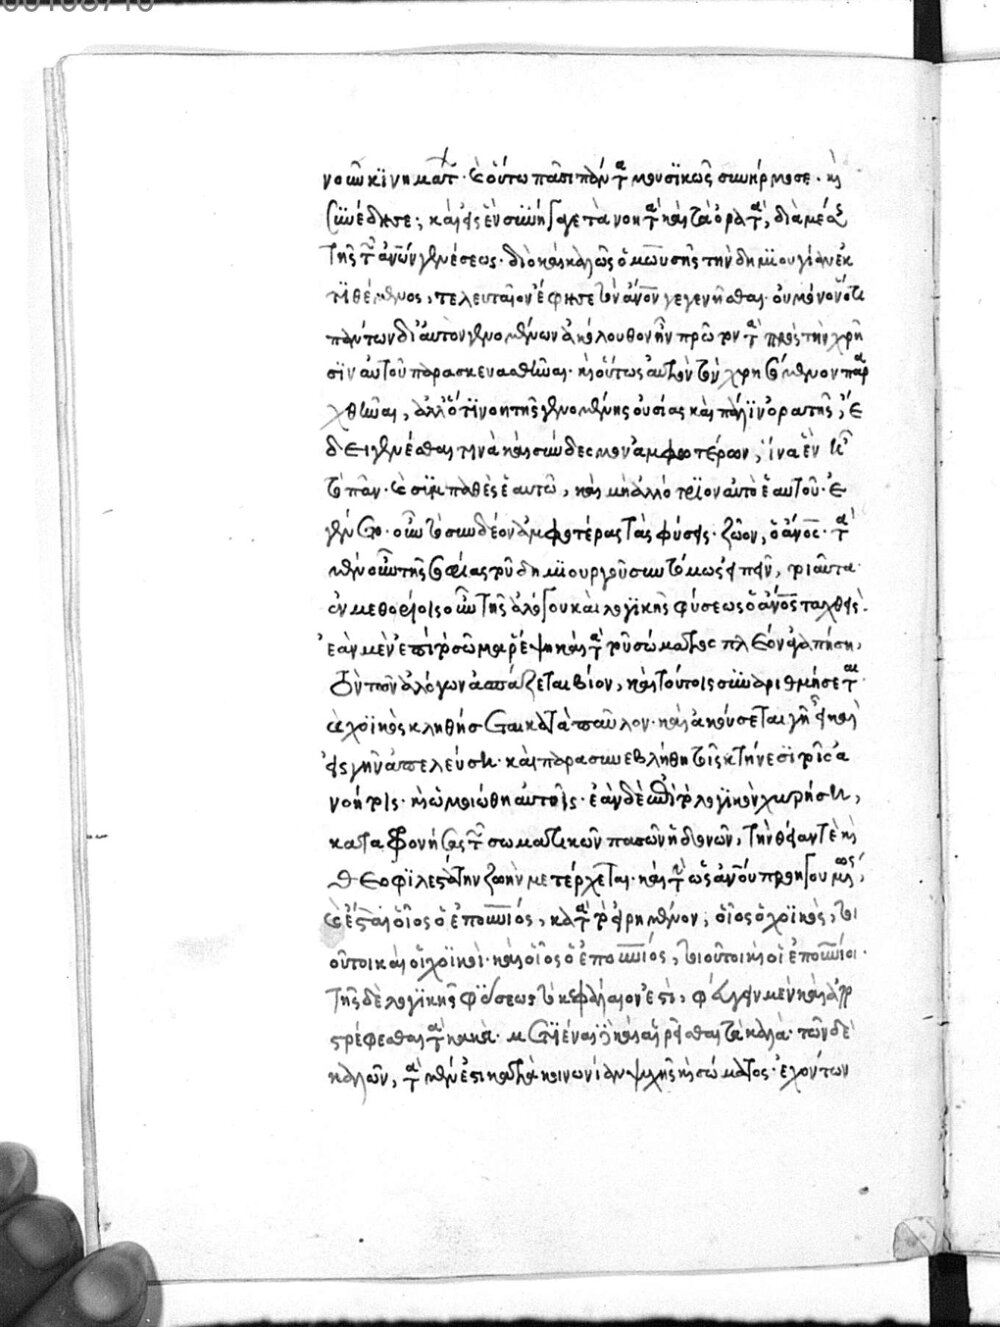 καὶ οὕτω πᾶσι πάντα μουσικῶς συνήρμοσε· καὶ
συνέδησε· καὶ εἰς ἓν συνήγαγε τὰ νοητὰ καὶ τὰ ὁρατά, διὰ μέσου
τῆς τῶν ἀνων γενέσεως· διὸ καὶ καλῶς ὁ μωυσῆς τὴν δημιουργίαν ἐκ
τιθέμενος, τελευταῖον ἔφησε τὸν ἄνον γεγενῆσθαι· οὐ μόνον ὅτι
πάντων δι' αὐτὸν γενομένων ἀκόλουθον ἦν πρῶτον τὰ πρὸς τὴν χρῆ
σιν αὐτοῦ παρασκευασθῆναι· καὶ οὕτως αὐτὸν τὸν χρησόμενον παρα
χθῆναι, ἀλλ' ὅτι νοητῆς γενομένης οὐσίας καὶ πάλιν ὁρατῆς, ἔ
δει γενέσθαι τινὰ καὶ σύνδεσμον ἀμφοτέρων, ἵνα ἓν ᾖ
τὸ πᾶν· καὶ συμπαθὲς ἑαυτῷ, καὶ μὴ ἀλλότριον αὐτὸ ἑαυτοῦ· ἐ
γένετο οὖν τὸ συνδέον ἀμφοτέρας τὰς φύσεις· ζῶον, ὁ ἄνος· τὰ
μὲν οὖν τῆς σοφίας τοῦ δημιουργοῦ συντόμως εἰπεῖν, τοιαῦτα·
ἐν μεθορίοις οὖν τῆς ἀλόγου καὶ λογικῆς φύσεως ὁ ἄνος ταχθείς·
ἐὰν μὲν ἐπὶ τὸ σῶμα ῥέψῃ καὶ τὰ τοῦ σώματος πλέον ἀγαπήσῃ,
τὸν τῶν ἀλόγων ἀσπάζεται βίον, καὶ τούτοις συναριθμήσεται·
καὶ χοϊκὸς κληθήσεται κατὰ παῦλον· καὶ ἀκούσεται γῆ εἶ καὶ
εἰς γῆν ἀπελεύσῃ· καὶ παρασυνεβλήθη τοῖς κτήνεσι τοῖς ἀ
νοήτοις· καὶ ὡμοιώθη αὐτοῖς· ἐὰν δὲ ἐπὶ τὸ λογικὸν χωρήσῃ,
καταφρονήσας τῶν σωματικῶν πασῶν ἡδονῶν, τὴν θείαν τε καὶ
θεοφιλεστάτην ζωὴν μετέρχεται· καὶ τὴν ὡς ἀνου προηγουμένως,
καὶ ἔσται οἷος ὁ ἐπουνιος, κατὰ τὸ εἰρημένον, οἷος ὁ χοϊκός, τοι
οῦτοι καὶ οἱ χοϊκοί· καὶ οἷος ὁ ἐπουνιος, τοιοῦτοι καὶ οἱ ἐπουνιοι·
τῆς δὲ λογικῆς φύσεως τὸ κεφάλαιον ἐστί, φεύγειν μὲν καὶ ἀπο
στρέφεσθαι τὰ κακά· μετιέναι δὲ καὶ αἱρεῖσθαι τὰ καλά· τῶν δὲ
καλῶν, τὰ μὲν ἐστι κατὰ κοινωνίαν ψυχῆς καὶ σώματος· ἐχόντων